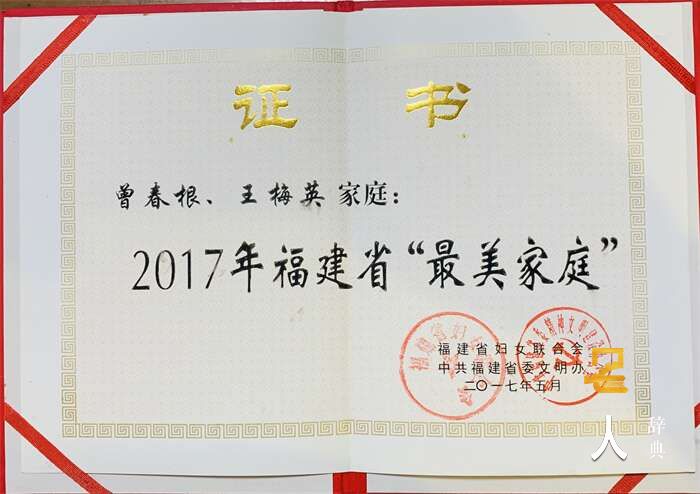 证书
曾春根、王梅英家庭：
2017年福建省“最美家庭”
福建省妇女联合会
中共福建省委文明办
二〇一七年五月
名人
辞典